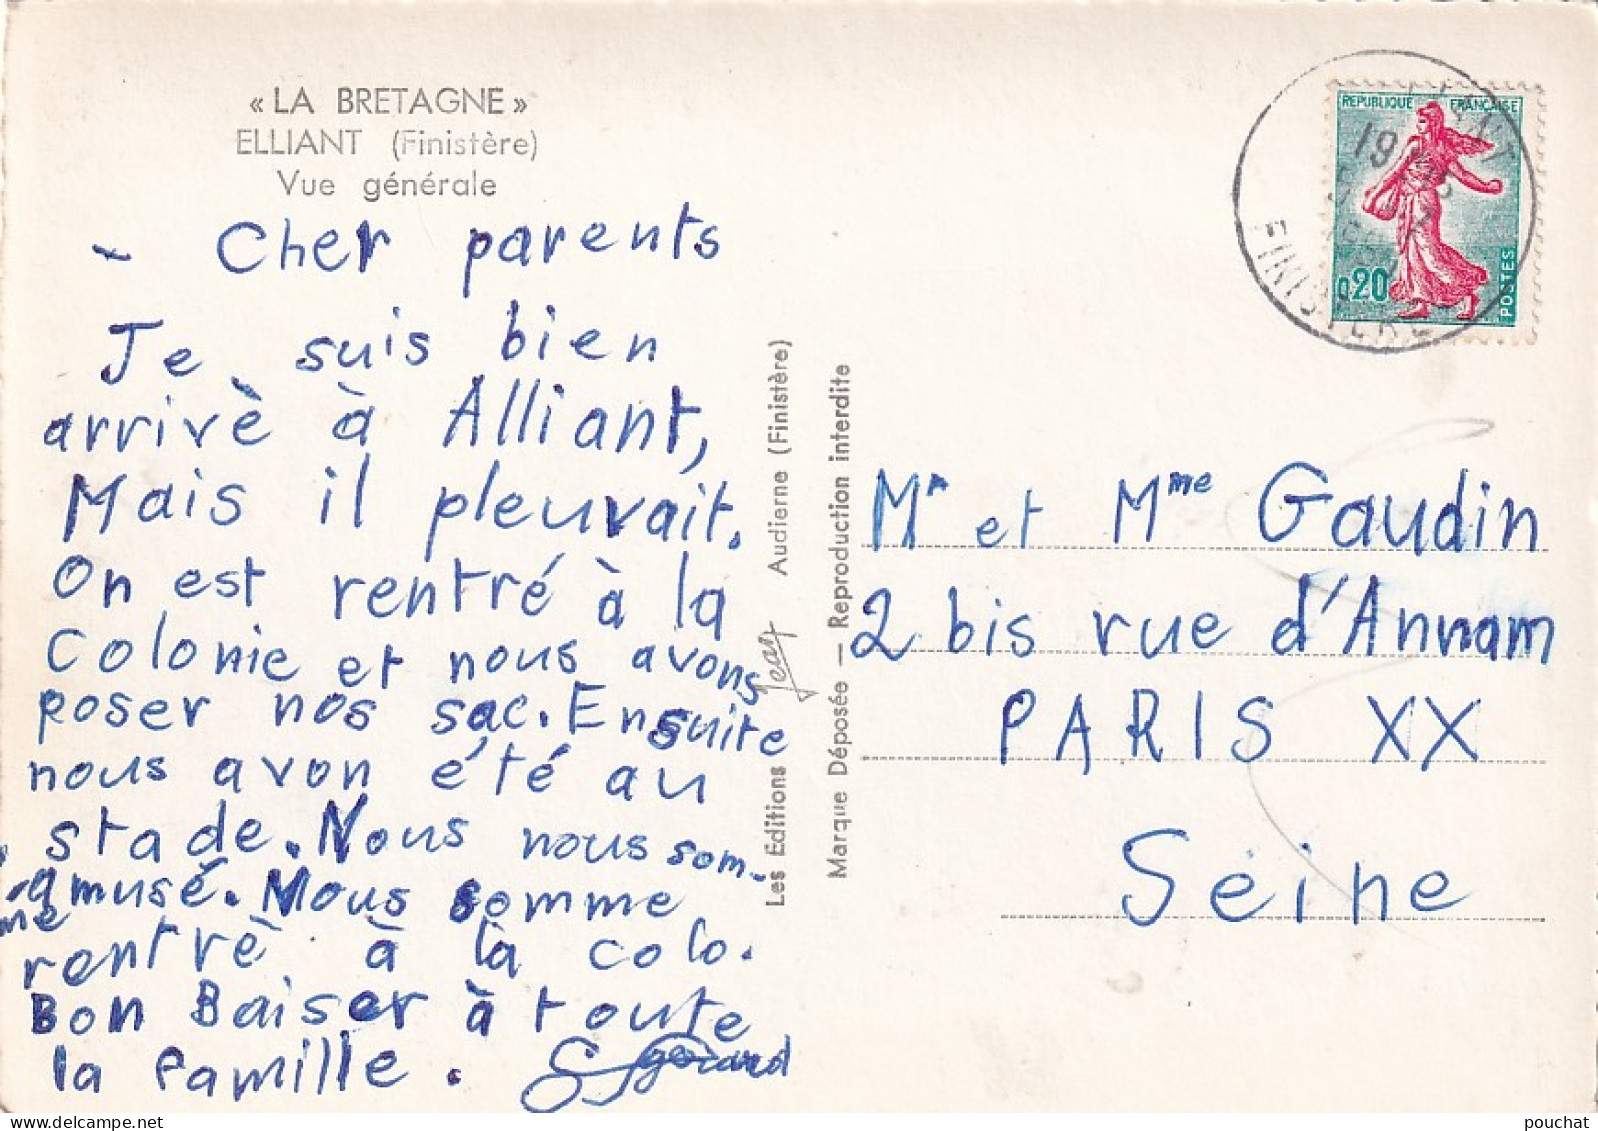 « LA BRETAGNE »
ELLIANT (Finistère)
Vue générale
- Cher parents
Je suis bien
arrivè à Alliant,
Mais il pleuvait.
On est rentré à la
Colonie et nous avons
poser nos sac. Ensuite
nous avon été au
stade. Nous nous som-
me amusé. Nous somme
rentrè à la colo.
Bon Baiser à toute
la famille. gerard
Les Editions Jean Audierne (Finistère)
Marque Déposée — Reproduction interdite
REPUBLIQUE FRANÇAISE
0,20
POSTES
19
FINISTERE
Mr et Mme Gaudin
2 bis rue d'Annam
PARIS XX
Seine
pouchat